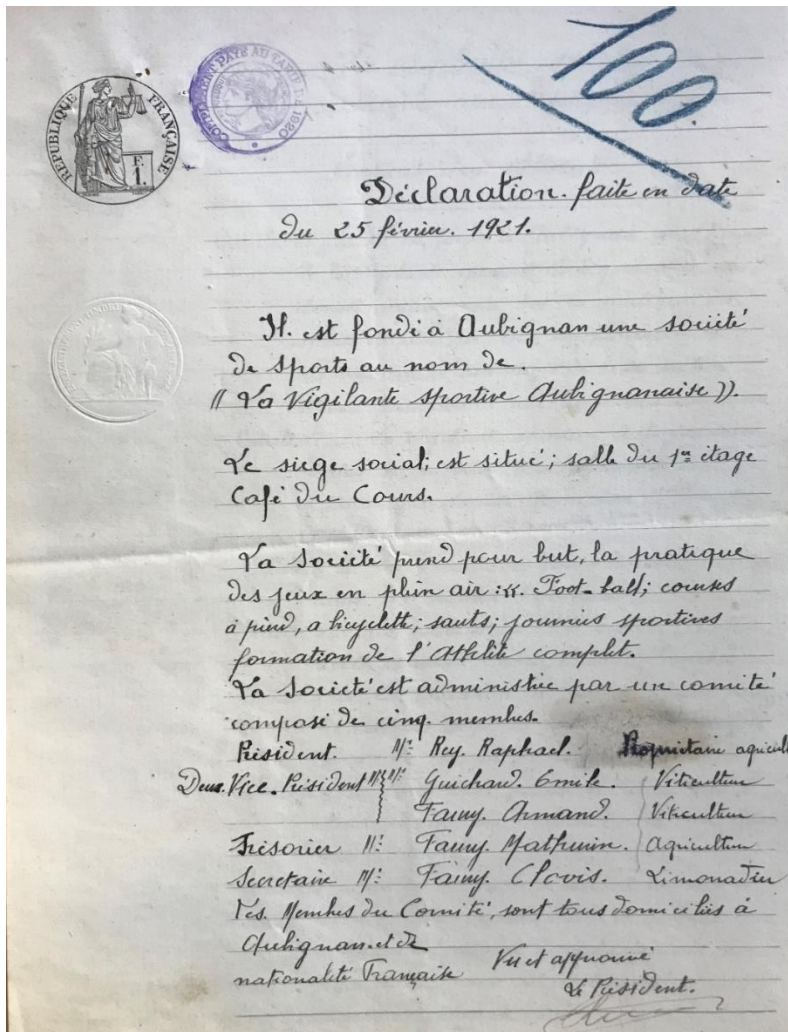 100
RÉPUBLIQUE FRANÇAISE
F.
1.
Déclaration. faite en date
du 25 février. 1921.
Il. est fondé à Aubignan une société
de sports au nom de.
(( La Vigilante sportive Aubignanaise )).
Le siège social; est situé; salle du 1er étage
Café du Cours.
La Société prend pour but, la pratique
des jeux en plein air : Foot-ball; courses
à pied, a bicyclette; sauts; journées sportives
formation de l'Athlète complet.
La Société est administrée par un comité
composé de cinq. membres.
Président. Mr Rey. Raphael. Propriétaire agricult
Deux. Vice. Président Mr Guichard. Emile. Viticulteur
Armand. Viticulteur
Trésorier Mr Mathurin. Agriculteur
Secrétaire Mr Clovis. Limonadier
Les. Membres du Comité, sont tous domiciliés à
Aubignan. et de
nationalité Française
Vu et approuvé
Le Président.